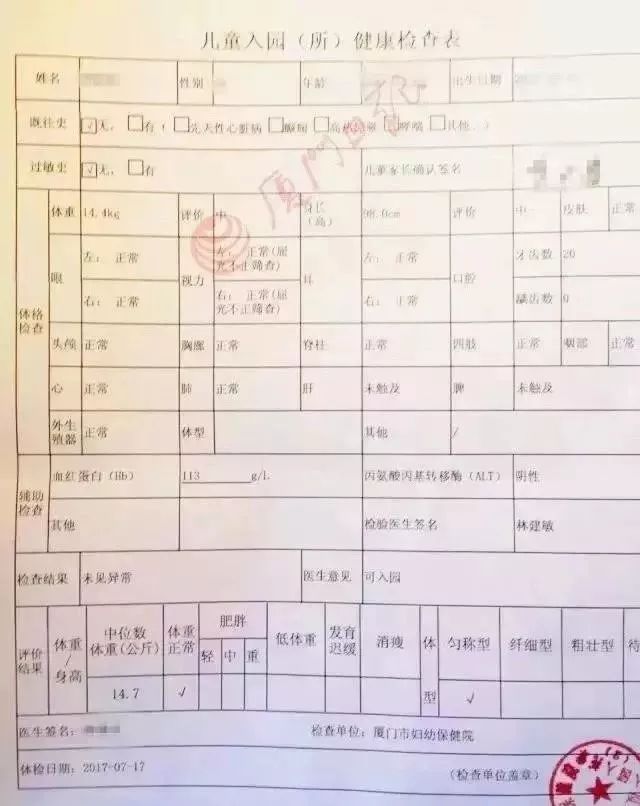 儿童入园（所）健康检查表
姓名 性别 年龄 出生日期
既往史 √无， 有（ 先天性心脏病 癫痫 高热惊厥 哮喘 其他.）
过敏史 √无， 有 儿童家长确认签名
厦门日报
体格检查
体重 14.4kg 评价 中 身长（高） 98.0cm 评价 中 皮肤 正常
眼 左： 正常 视力 左： 正常(屈光不正筛查) 耳 左： 正常 口腔 牙齿数 20
右： 正常 右： 正常(屈光不正筛查) 右： 正常 龋齿数 0
头颅 正常 胸廓 正常 脊柱 正常 四肢 正常 咽部 正常
心 正常 肺 正常 肝 未触及 脾 未触及
外生殖器 正常 体型 其他 /
辅助检查
血红蛋白(Hb) 113 g/L 丙氨酸丙基转移酶(ALT) 阴性
其他 检验医生签名 林建敏
检查结果 未见异常 医生意见 可入园
评价结果
体重/身高 中位数体重(公斤) 体重正常 肥胖 低体重 发育迟缓 消瘦 体型 匀称型 纤细型 粗壮型
轻 中 重
14.7 √ √
医生签名： 检查单位：厦门市妇幼保健院
体检日期：2017-07-17 (检查单位盖章)